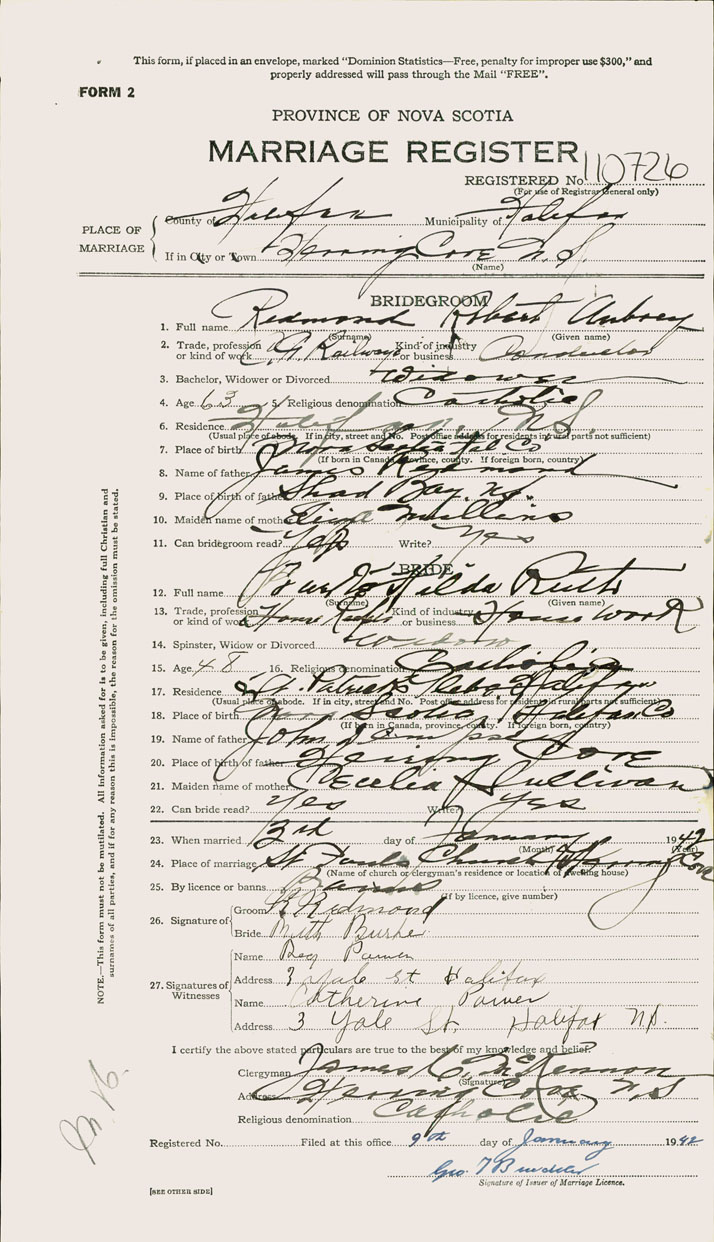 This form, if placed in an envelope, marked “Dominion Statistics—Free, penalty for improper use $300,” and
properly addressed will pass through the Mail “FREE”.
FORM 2
PROVINCE OF NOVA SCOTIA
MARRIAGE REGISTER
REGISTERED No. 110726
(For use of Registrar General only)
PLACE OF MARRIAGE
County of Halifax Municipality of Halifax
If in City or Town Herring Cove N.S.
(Name)
BRIDEGROOM
1. Full name Redmond Robert Aubrey
(Surname) (Given name)
2. Trade, profession or kind of work Railways Kind of industry or business Conductor
3. Bachelor, Widower or Divorced Widower
4. Age 63 5. Religious denomination Catholic
6. Residence Halifax, N.S.
(Usual place of abode. If in city, street and No. Post office address for residents in rural parts not sufficient)
7. Place of birth Nova Scotia Co
(If born in Canada, province, county. If foreign born, country)
8. Name of father James Redmond
9. Place of birth of father Shad Bay, N.S.
10. Maiden name of mother Eliza Mullins
11. Can bridegroom read? Yes Write? Yes
BRIDE
12. Full name Hilda Ruth
(Surname) (Given name)
13. Trade, profession or kind of work House Keeper Kind of industry or business House Work
14. Spinster, Widow or Divorced Widow
15. Age 48 16. Religious denomination Catholic
17. Residence St. Patrick's Halifax
(Usual place of abode. If in city, street and No. Post office address for residents in rural parts not sufficient)
18. Place of birth Nova Scotia, Halifax Co
(If born in Canada, province, county. If foreign born, country)
19. Name of father John Dempsey
20. Place of birth of father Herring Cove
21. Maiden name of mother Cecelia Sullivan
22. Can bride read? Yes Write? Yes
23. When married 3rd day of January 1942
(Month) (Year)
24. Place of marriage St Pauls Church Herring Cove
(Name of church or clergyman's residence or location of dwelling house)
25. By licence or banns Banns
(If by licence, give number)
26. Signature of
Groom R Redmond
Bride Ruth Burke
27. Signatures of Witnesses
Name Reg Power
Address 3 Yale St Halifax
Name Catherine Power
Address 3 Yale St. Halifax N.S.
I certify the above stated particulars are true to the best of my knowledge and belief.
Clergyman James C. McKennon
(Signature)
Address Herring Cove N.S
Religious denomination Catholic
Registered No. Filed at this office 9th day of January 1942
Geo. T
Signature of Issuer of Marriage Licence.
[SEE OTHER SIDE]
NOTE.—This form must not be mutilated. All information asked for is to be given, including full Christian and
surnames of all parties, and if for any reason this is impossible, the reason for the omission must be stated.